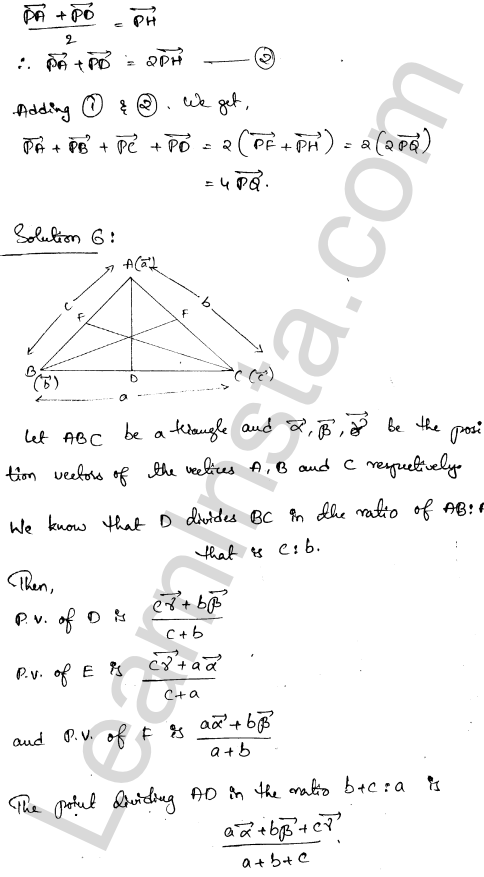 (PA⃗ + PD⃗)/2 = PH⃗
∴ PA⃗ + PD⃗ = 2PH⃗ —— ②
Adding ① & ②. We get,
PA⃗ + PB⃗ + PC⃗ + PD⃗ = 2(PF⃗ + PH⃗) = 2(2PQ⃗)
= 4PQ⃗.
Solution 6:
A(a⃗)
c b
F F
B D C(c⃗)
(b⃗)
a
Let ABC be a triangle and α⃗, β⃗, γ⃗ be the posi
tion vectors of the vertices A, B and C respectively.
We know that D divides BC in the ratio of AB:A
that is c:b.
Then,
P.V. of D is (cγ⃗ + bβ⃗)/(c+b)
P.V. of E is (cγ⃗ + aα⃗)/(c+a)
and P.V. of F is (aα⃗ + bβ⃗)/(a+b)
The point dividing AD in the ratio b+c:a is
(aα⃗ + bβ⃗ + cγ⃗)/(a+b+c).
LearnInsta.com